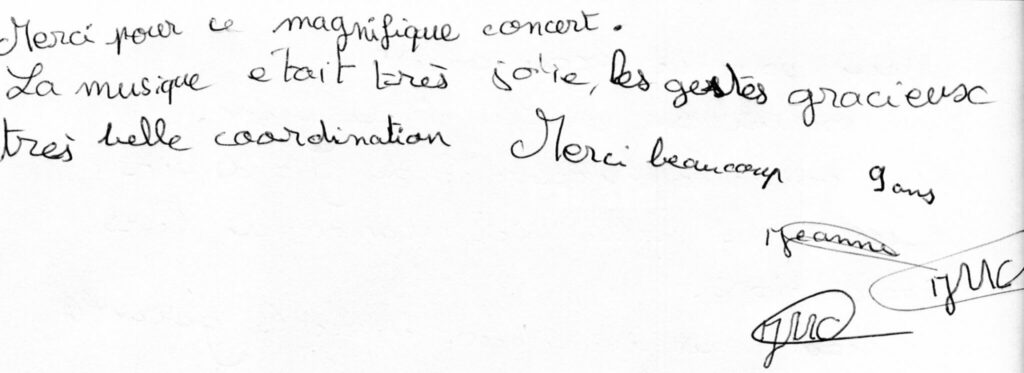 Merci pour ce magnifique concert.
La musique etait très jolie, les gestes gracieux
très belle coordination Merci beaucoup 9 ans
Jeanne